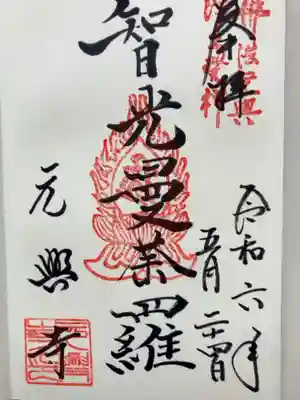 奉拝
令和六年
五月二十四日
智光曼荼羅
元興寺